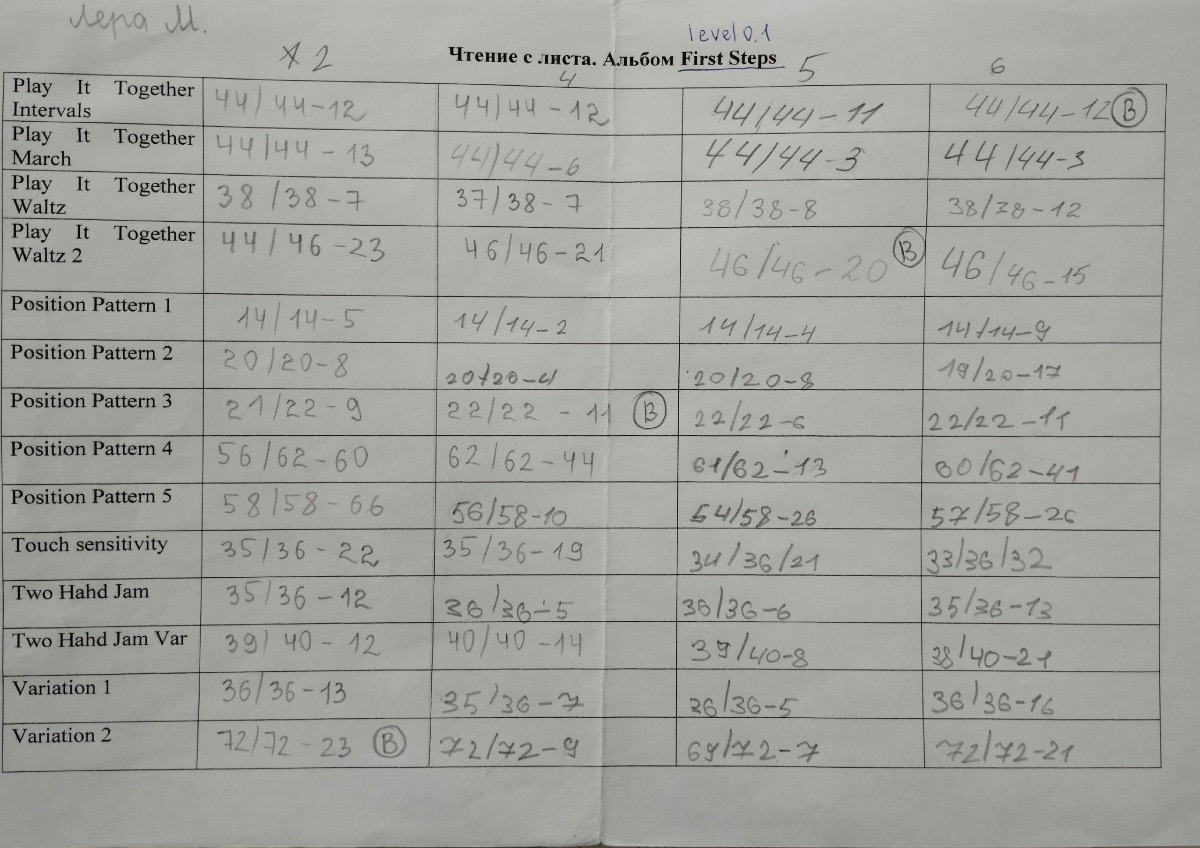 Лера М.
level 0.1
Чтение с листа. Альбом First Steps
2 4 5 6
Play It Together Intervals 44/44-12 44/44-12 44/44-11 44/44-12 В
Play It Together March 44/44-13 44/44-6 44/44-3 44/44-3
Play It Together Waltz 38/38-7 37/38-7 38/38-8 38/38-12
Play It Together Waltz 2 44/46-23 46/46-21 46/46-20 В 46/46-15
Position Pattern 1 14/14-5 14/14-2 14/14-4 14/14-9
Position Pattern 2 20/20-8 20/20-4 20/20-8 19/20-17
Position Pattern 3 21/22-9 22/22-11 В 22/22-6 22/22-11
Position Pattern 4 56/62-60 62/62-44 61/62-13 60/62-41
Position Pattern 5 58/58-66 56/58-10 54/58-26 57/58-26
Touch sensitivity 35/36-22 35/36-19 34/36/21 33/36/32
Two Hahd Jam 35/36-12 36/36-5 36/36-6 35/36-13
Two Hahd Jam Var 39/40-12 40/40-14 39/40-8 38/40-21
Variation 1 36/36-13 35/36-7 36/36-5 36/36-16
Variation 2 72/72-23 В 72/72-9 69/72-7 72/72-21